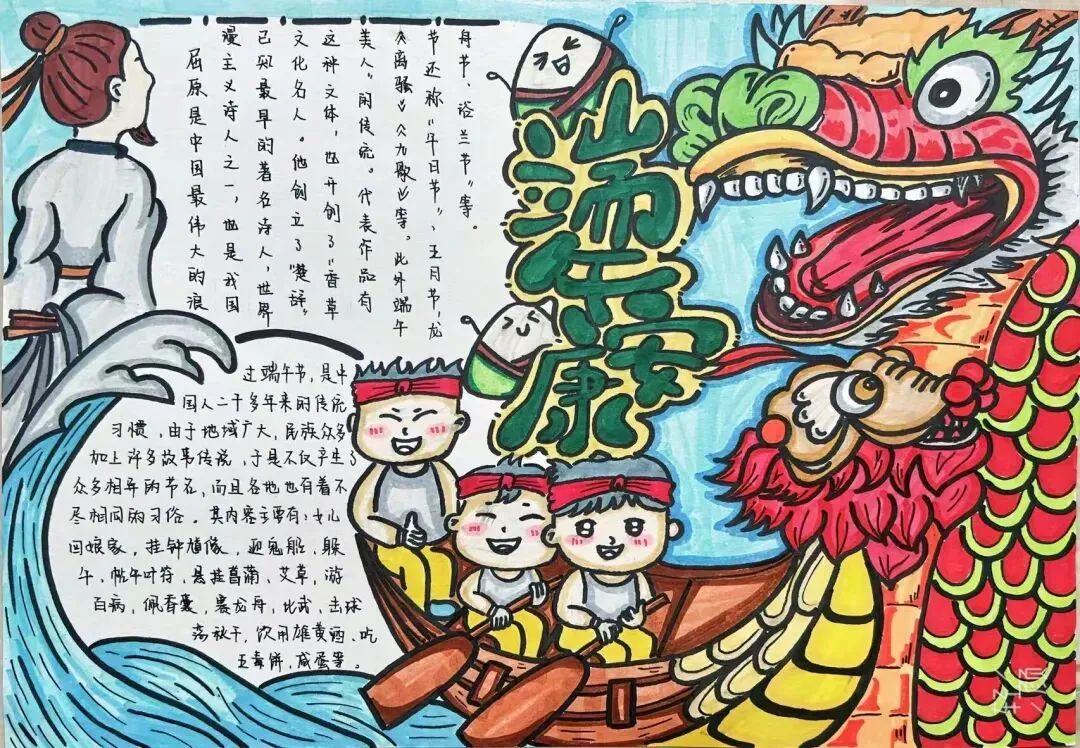 端午安康
屈原是中国最伟大的浪
漫主义诗人之一,也是我国
已知最早的著名诗人,世界
文化名人。他创立了"楚辞"
这种文体,也开创了"香草
美人"闲传统。代表作品有
《离骚》《九歌》等。此外端午
节还称"午日节"、五月节、龙
舟节、浴兰节"等。
过端午节,是中
国人二千多年来的传统
习惯,由于地域广大,民族众多
加上许多故事传说,于是不仅产生了
众多相异的节名,而且各地也有着不
尽相同的习俗。其内容主要有:女儿
回娘家,挂钟馗像,迎鬼船、躲
午,帖午叶符,悬挂菖蒲、艾草,游
百病,佩香囊,赛龙舟,比武,击球
荡秋千,饮用雄黄酒、吃
五毒饼,咸蛋等。